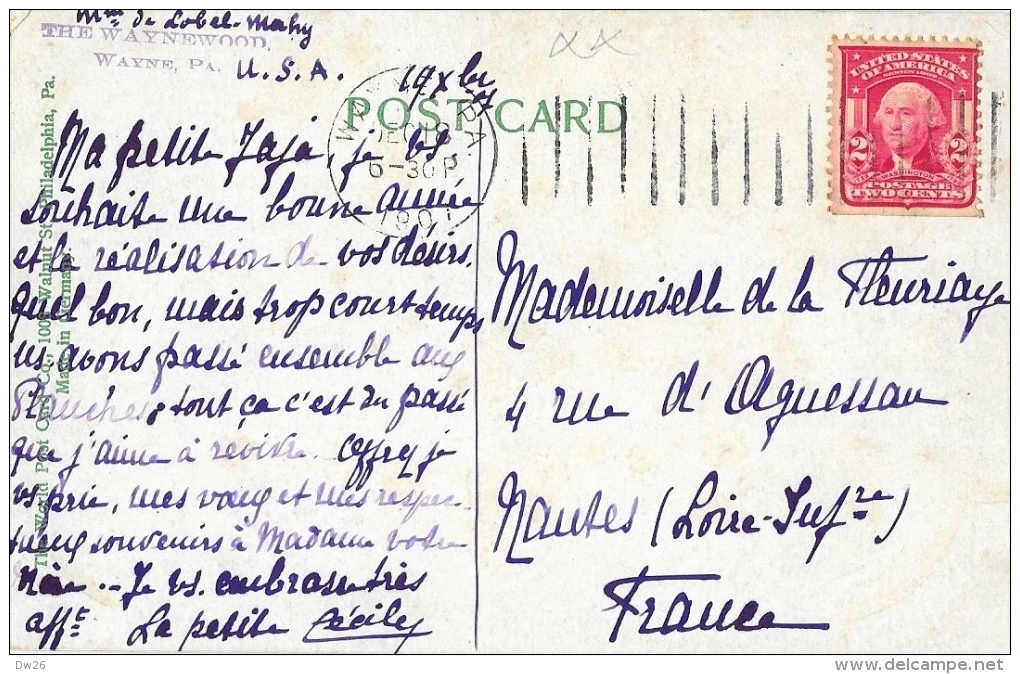 Mme de Lobel-Mahy
THE WAYNEWOOD,
WAYNE, PA.
U.S.A.
19 Xber
POST CARD
WAYNE, PA.
DEC 19
6-30 P
190
UNITED STATES
OF AMERICA
2 2
WASHINGTON
POSTAGE
TWO CENTS
Ma petite Jaja, je vs
souhaite une bonne année
et la réalisation de vos désirs.
Quel bon, mais trop court temps
ns avons passé ensemble aux
Planches, tout ça c'est du passé
que j'aime à revivre. Offrez je
vs prie, mes vœux et mes respec-
tueux souvenirs à Madame votre
Mère -- Je vs. embrasse très
afft La petite Cécily
Mademoiselle de la Fleuriaye
4 rue d'Aguesseau
Nantes (Loire-Infre)
France
The World Post Card Co., 1005 Walnut St., Philadelphia, Pa.
Made in Germany.
Dw26
delcampe.net